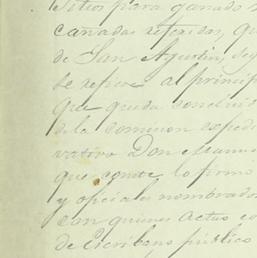 sitios para ganado
cañadas referidos, que
de San Agustin, seg
se refiere al princip
que queda concluid
de la comision espedi
vatoro Don Manue
que conste lo firmo
y oficiales nombrados
con quienes actuo co
de Escribano público